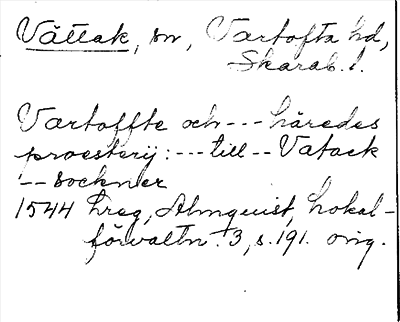 Vättak, sn, Vartofta hd,
Skarab. l.
Vartoffte och --- häredes
proesterij: --- till -- Vatack
-- sockner
1544 Lreg, Almquist, Lokal-
förvaltn. 3, s. 191. orig.